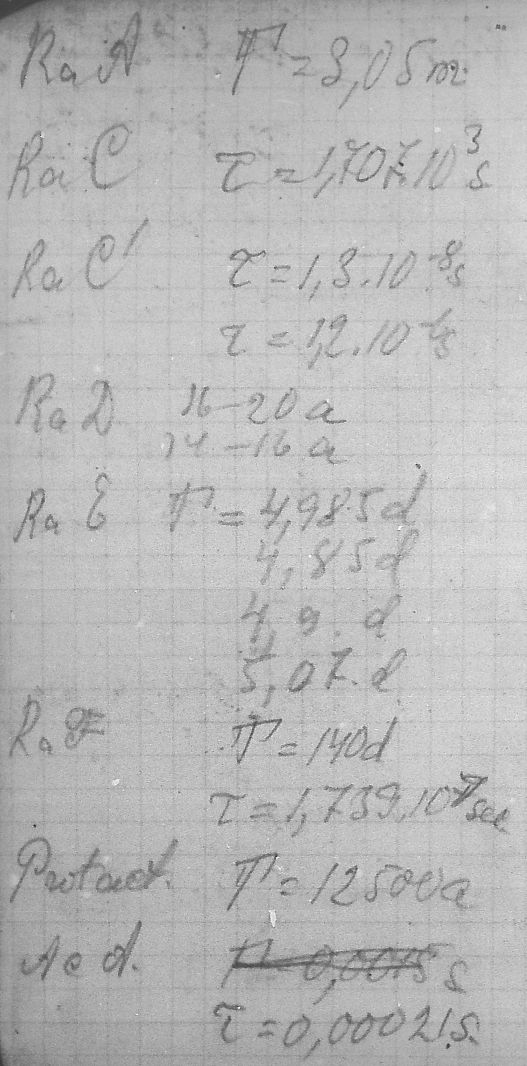 RaA T = 3,05 m.
RaC τ = 1,707.10³ s
RaC' τ = 1,3.10⁻⁸ s
τ = 1,2.10⁻⁶ s
RaD 16–20 a
14–16 a
RaE T = 4,985 d
4,85 d
4,9. d
5,07. d
RaF T = 140 d
τ = 1,739.10⁷ sec
Protact. T = 12500 a
AcA. T = 0,0015 s
τ = 0,0021 s.